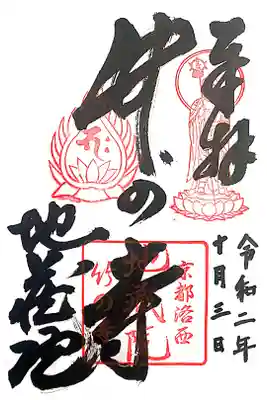 奉拝
令和二年
十月三日
竹の寺
地蔵院
京都洛西
地蔵院
竹の寺